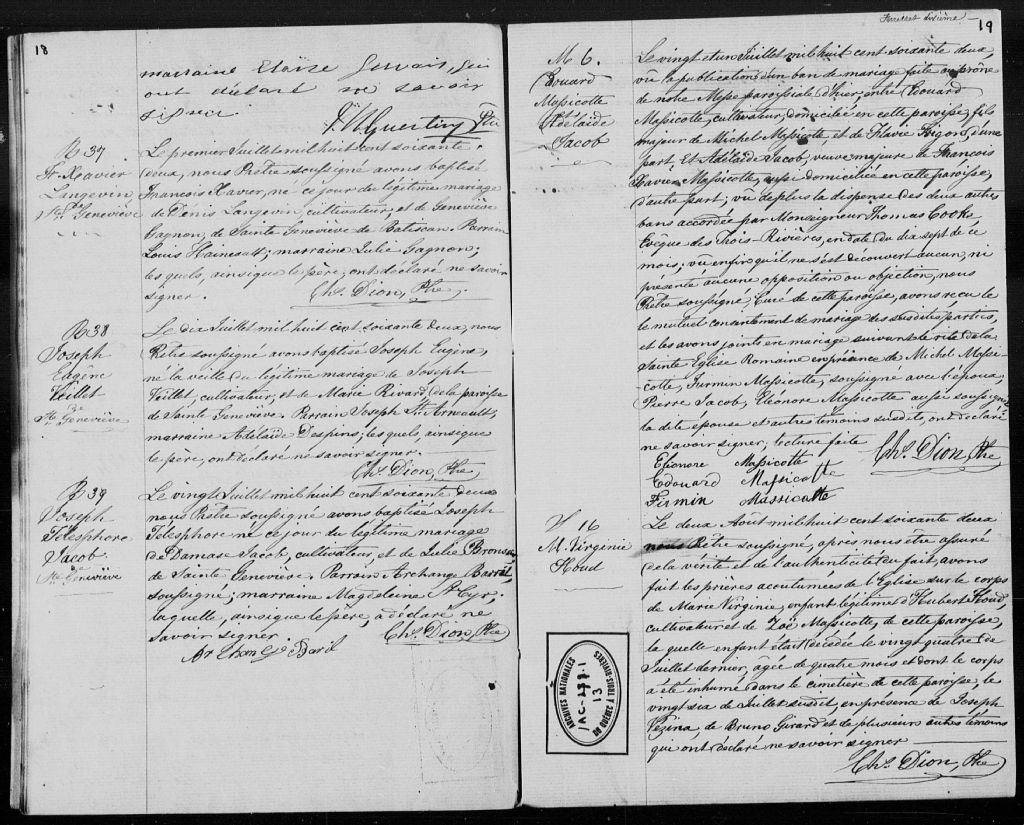 18
marraine Eloïse Gervais, qui
ont déclaré ne savoir
signer
Ptre
B 37
Fr. Xavier
Langevin
Ste. Geneviève
Le premier Juillet mil huit cent soixante-
deux, nous Prêtre soussigné avons baptisé
François Xavier, né ce jour du légitime mariage
de Denis Langevin, cultivateur, et de Geneviève
Gagnon, de Sainte Geneviève de Batiscan. Parrain
Louis marraine Julie Gagnon;
lesquels, ainsi que le père, ont déclaré ne savoir
signer.
Chs. Dion, Ptre.
B 38
Joseph
Eugène
Veillet
de
Ste. Geneviève
Le dix Juillet mil huit cent soixante deux, nous
Prêtre soussigné avons baptisé Joseph Eugène,
né la veille du légitime mariage de Joseph
Veillet, cultivateur, et de Marie Rivard de la paroisse
de Sainte Geneviève. Parrain Joseph St. Arneault,
marraine Adélaïde Despins; lesquels, ainsi que
le père, ont déclaré ne savoir signer.
Chs. Dion, Ptre
B 39
Joseph
Télesphore
Jacob
de
Ste. Geneviève
Le vingt Juillet mil huit cent soixante deux
nous Prêtre soussigné avons baptisé Joseph
Télesphore né ce jour du légitime mariage
de Damase Jacob, cultivateur, et de Julie
de Sainte Geneviève. Parrain Archange
soussigné; marraine Magdeleine St. Cyr.
laquelle, ainsi que le père, a déclaré ne
savoir signer.
Chs. Dion, Ptre
Bard
Feuillet dixième
19
M 6.
Edouard
Massicotte
et
Adélaïde
Jacob
Le vingt et un Juillet mil huit cent soixante deux
vû la publication d'un ban de mariage faite au prône
de notre Messe paroissiale d'hier, entre Edouard
Massicotte, cultivateur, domicilié en cette paroisse, fils
majeur de Michel Massicotte, et de Flavie Trigon, d'une
part. Et Adélaïde Jacob, veuve majeure de François
Xavier Massicotte, aussi domiciliée en cette paroisse,
d'autre part; vû de plus la dispense des deux autres
bans accordée par Monseigneur Thomas Cooke
Evêque des Trois-Rivières, en date du dix sept de ce
mois; vû enfin qu'il ne s'est découvert aucun, ni
présenté aucune opposition ou objection, nous
Prêtre soussigné, Curé de cette paroisse, avons reçu le
le mutuel consentement de mariage des susdites parties,
et les avons joints en mariage suivant le rite de la
Sainte Eglise Romaine en présence de Michel Massi-
cotte, Firmin Massicotte, soussigné avec l'époux,
Pierre Jacob, Eléonore Massicotte aussi soussignée
la dite épouse et autres témoins susdits, ont déclaré
ne savoir signer, lecture faite
Eléonore Massicotte
Chs. Dion, Ptre
Edouard Massicotte
Firmin Massicotte
S 16
M. Virginie
Houd
Le deux Août mil huit cent soixante deux
nous Prêtre soussigné, après nous être assuré
de la vérité et de l'authenticité du fait, avons
fait les prières accoutumées de l'Eglise sur le corps
de Marie Virginie, enfant légitime d'Hubert Houd,
cultivateur et de Zoé Massicotte, de cette paroisse,
la quelle enfant était décédée le vingt quatre de
Juillet dernier, agée de quatre mois et dont le corps
a été inhumé dans le cimetière de cette paroisse, le
vingt six de Juillet susdit, en présence de Joseph
Vézina, de Bruno Girard et de plusieurs autres témoins
qui ont déclaré ne savoir signer
Chs. Dion, Ptre
ARCHIVES NATIONALES
DU QUÉBEC À TROIS-RIVIÈRES
13